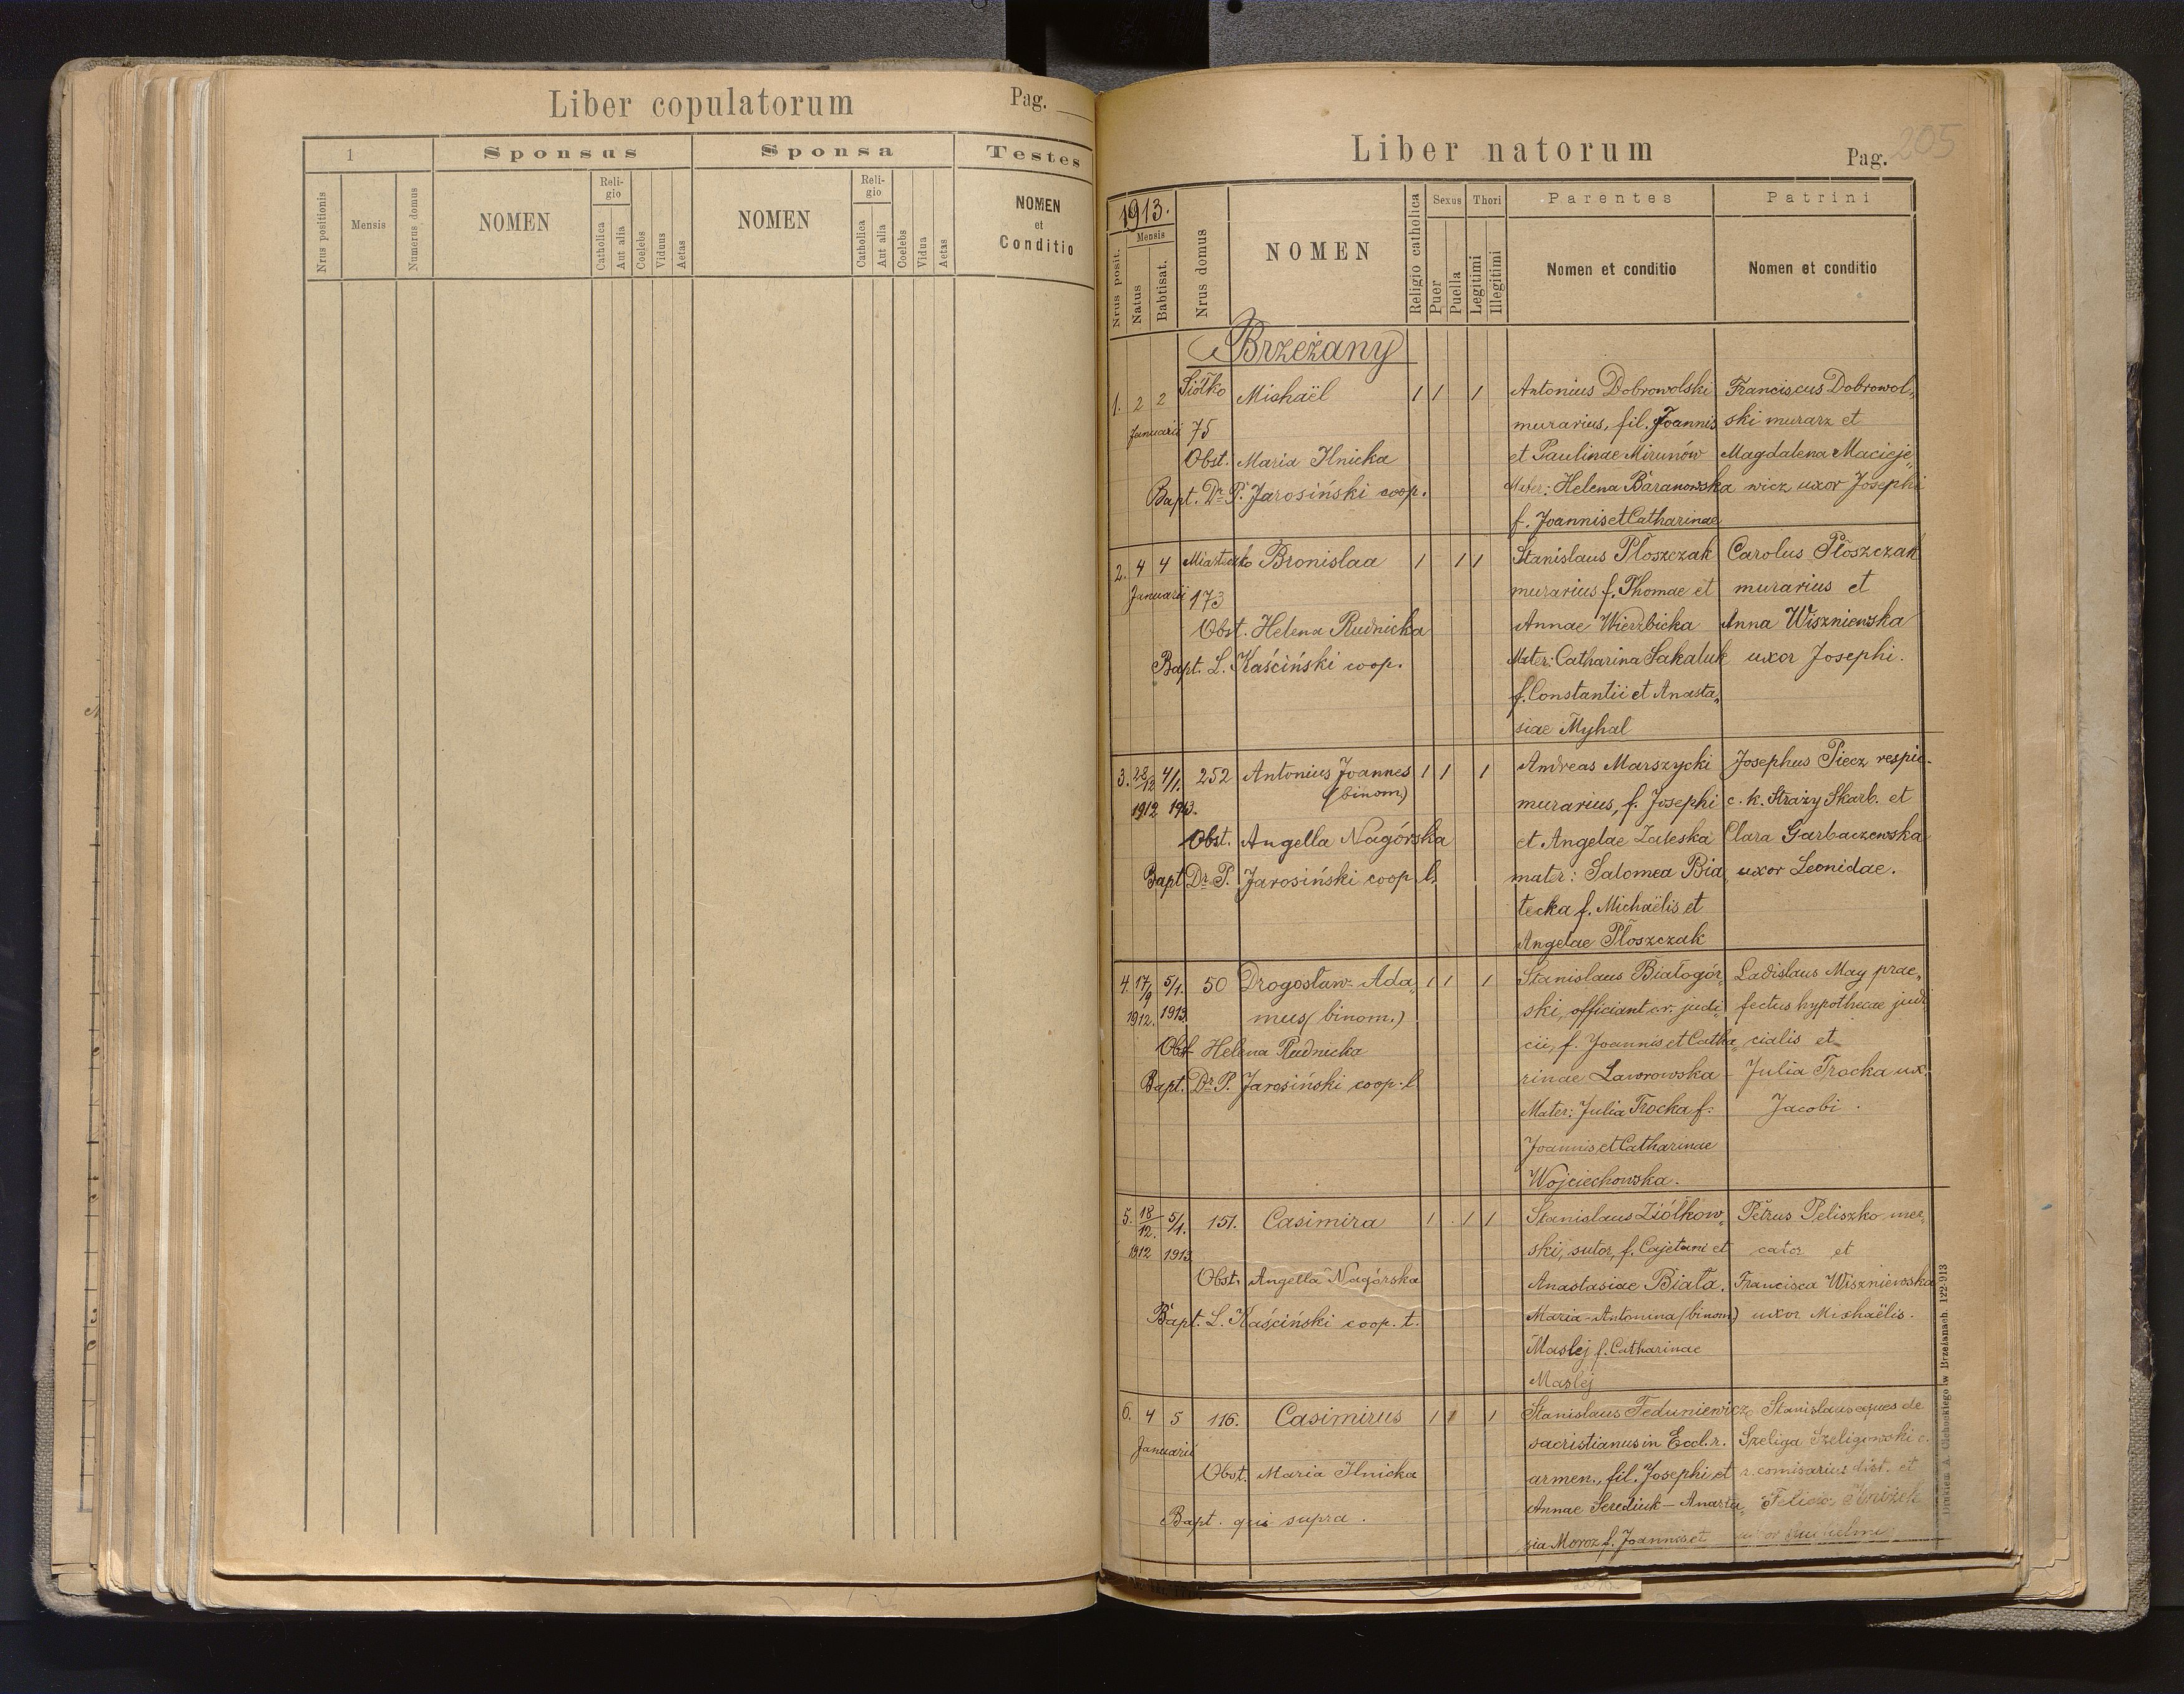 Liber copulatorum
Pag.
1
Sponsus
Sponsa
Testes
Nrus positionis
Mensis
Numerus domus
NOMEN
Reli-
gio
Catholica
Aut alia
Coelebs
Viduus
Aetas
NOMEN
Reli-
gio
Catholica
Aut alia
Coelebs
Vidua
Aetas
NOMEN
et
Conditio
Liber natorum
Pag. 205
1913.
Nrus posit.
Mensis
Natus
Babtisat.
Nrus domus
NOMEN
Religio catholica
Sexus
Puer
Puella
Thori
Legitimi
Illegitimi
Parentes
Nomen et conditio
Patrini
Nomen et conditio
Brzeżany
1. 2 2 Siółko Michaël 1 1 1 Antonius Dobrowolski Franciscus Dobrowol„
Januarii 75 murarius, fil. Joannis ski murarz et
Obst. Maria Ilnicka et Paulinae Mirunów Magdalena Macieje„
Bapt. Dr P. Jarosiński coop. Mater: Helena Baranowska wicz uxor Josephi
f. Joannis et Catharinae
2. 4 4 Miasteczko Bronislaa 1 1 1 Stanislaus Płoszczak Carolus Płoszczak
Januarii 173 murarius f. Thomae et murarius et
Obst. Helena Rudnicka Annae Wierzbicka Anna Wiszniewska
Bapt. L. Kaściński coop. Mater: Catharina Sakaluk uxor Josephi.
f. Constantii et Anasta„
siae Myhal
3. 28/12 4/1. 252 Antonius Joannes 1 1 1 Andreas Marszycki Josephus Piecz respic.
1912 1913. (binom.) murarius, f. Josephi c. k. Straży Skarb. et
Obst. Angella Nagórska et Angelae Zaleska Clara Garbaczewska
Bapt Dr P. Jarosiński coop. l. mater: Salomea Bia„ uxor Leonidae.
tecka f. Michaëlis et
Angelae Płoszczak
4. 17/9 5/1. 50 Drogosław-Ada„ 1 1 1 Stanislaus Białogór„ Ladislaus May prae„
1912. 1913. mus (binom.) ski, officiant cr. judi„ fectus hypothecae judi
Obst Helena Rudnicka cii, f. Joannis et Catha„ cialis et
Bapt. Dr P. Jarosiński coop. l rinae Lawrowska - Julia Trocka ux.
Mater: Julia Trocka f. Jacobi.
Joannis et Catharinae
Wojciechowska.
5. 18/12. 5/1. 151. Casimira 1 1 1 Stanislaus Ziółkow„ Petrus Peliszko mer„
1912 1913 ski, sutor, f. Cajetani et cator et
Obst. Angella Nagórska Anastasiae Biała. Francisca Wiszniewska
Bapt. L. Kaściński coop. t. Maria-Antonina (binom) uxor Michaëlis.
Maslej f. Catharinae
Maslej
6. 4 5 116. Casimirus 1 1 1 Stanislaus Teduniewicz Stanislaus eques de
Januarii sacristianus in Eccl. r. Szeliga Szeligowski c.
Obst. Maria Ilnicka armen., fil. Josephi et r. comisarius dist. et
Bapt. qui supra. Annae Serediuk - Anasta„
sia Moroz f. Joannis et uxor
Drukiem A. Cichockiego w Brzeżanach. 122-913